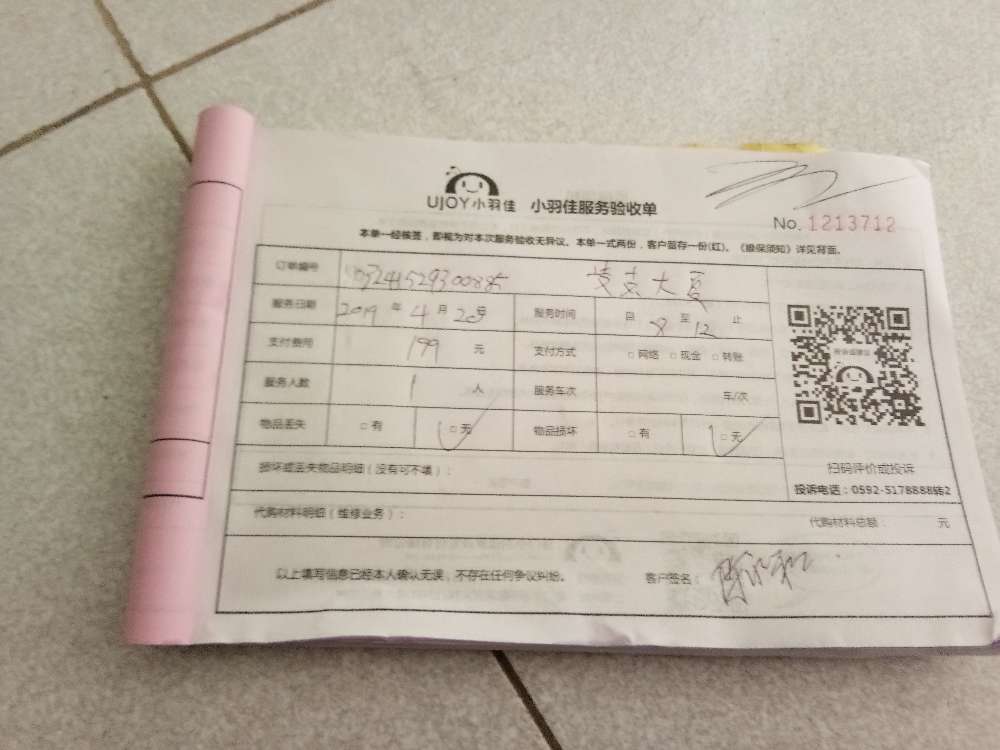 UJOY小羽佳 小羽佳服务验收单
No. 1213712
本单一经核签,即视为对本次服务验收无异议。本单一式两份,客户留存一份(红)。《服保须知》详见背面。
订单编号 大夏
服务日期 2019 年 4 月 20 号 服务时间 自 8 至 12 止
支付费用 199 元 支付方式 □ 网络 □ 现金 □ 转账
服务人数 1 人 服务车次 车/次
物品丢失 □ 有 □ 无 物品损坏 □ 有 □ 无
扫码评价或投诉
投诉电话:0592-5178888转2
损坏或丢失物品明细(没有可不填):
代购材料明细(维修业务): 代购材料总额: 元
以上填写信息已经本人确认无误,不存在任何争议纠纷。 客户签名: